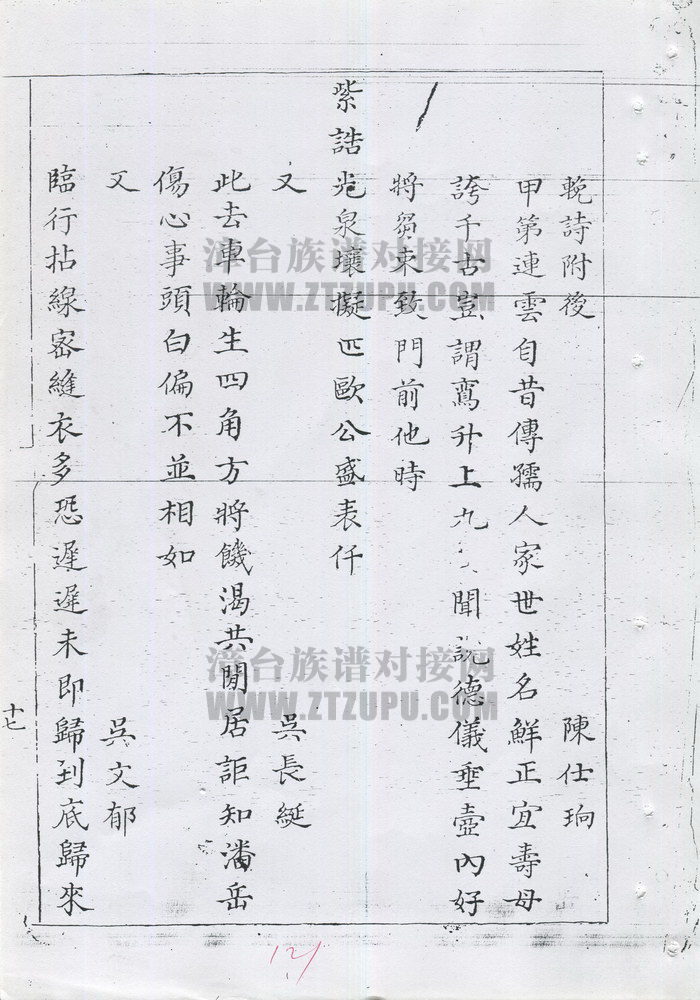 輓詩附後 陳仕珦
甲第連雲自昔傳孺人家世姓名鮮正宜壽母
誇千古豈謂鸞升上九 聞說德儀垂壼內好
將芻束致門前他時
紫誥光泉壤擬匹歐公盛表仟
又 吳長綖
此去車輪生四角方將饑渴共閒居詎知潘岳
傷心事頭白偏不並相如
又 吳文郁
臨行拈線密縫衣多恐遲遲未即歸到底歸來
十七
121
漳台族谱对接网
WWW.ZTZUPU.COM
漳台族谱对接网
WWW.ZTZUPU.COM